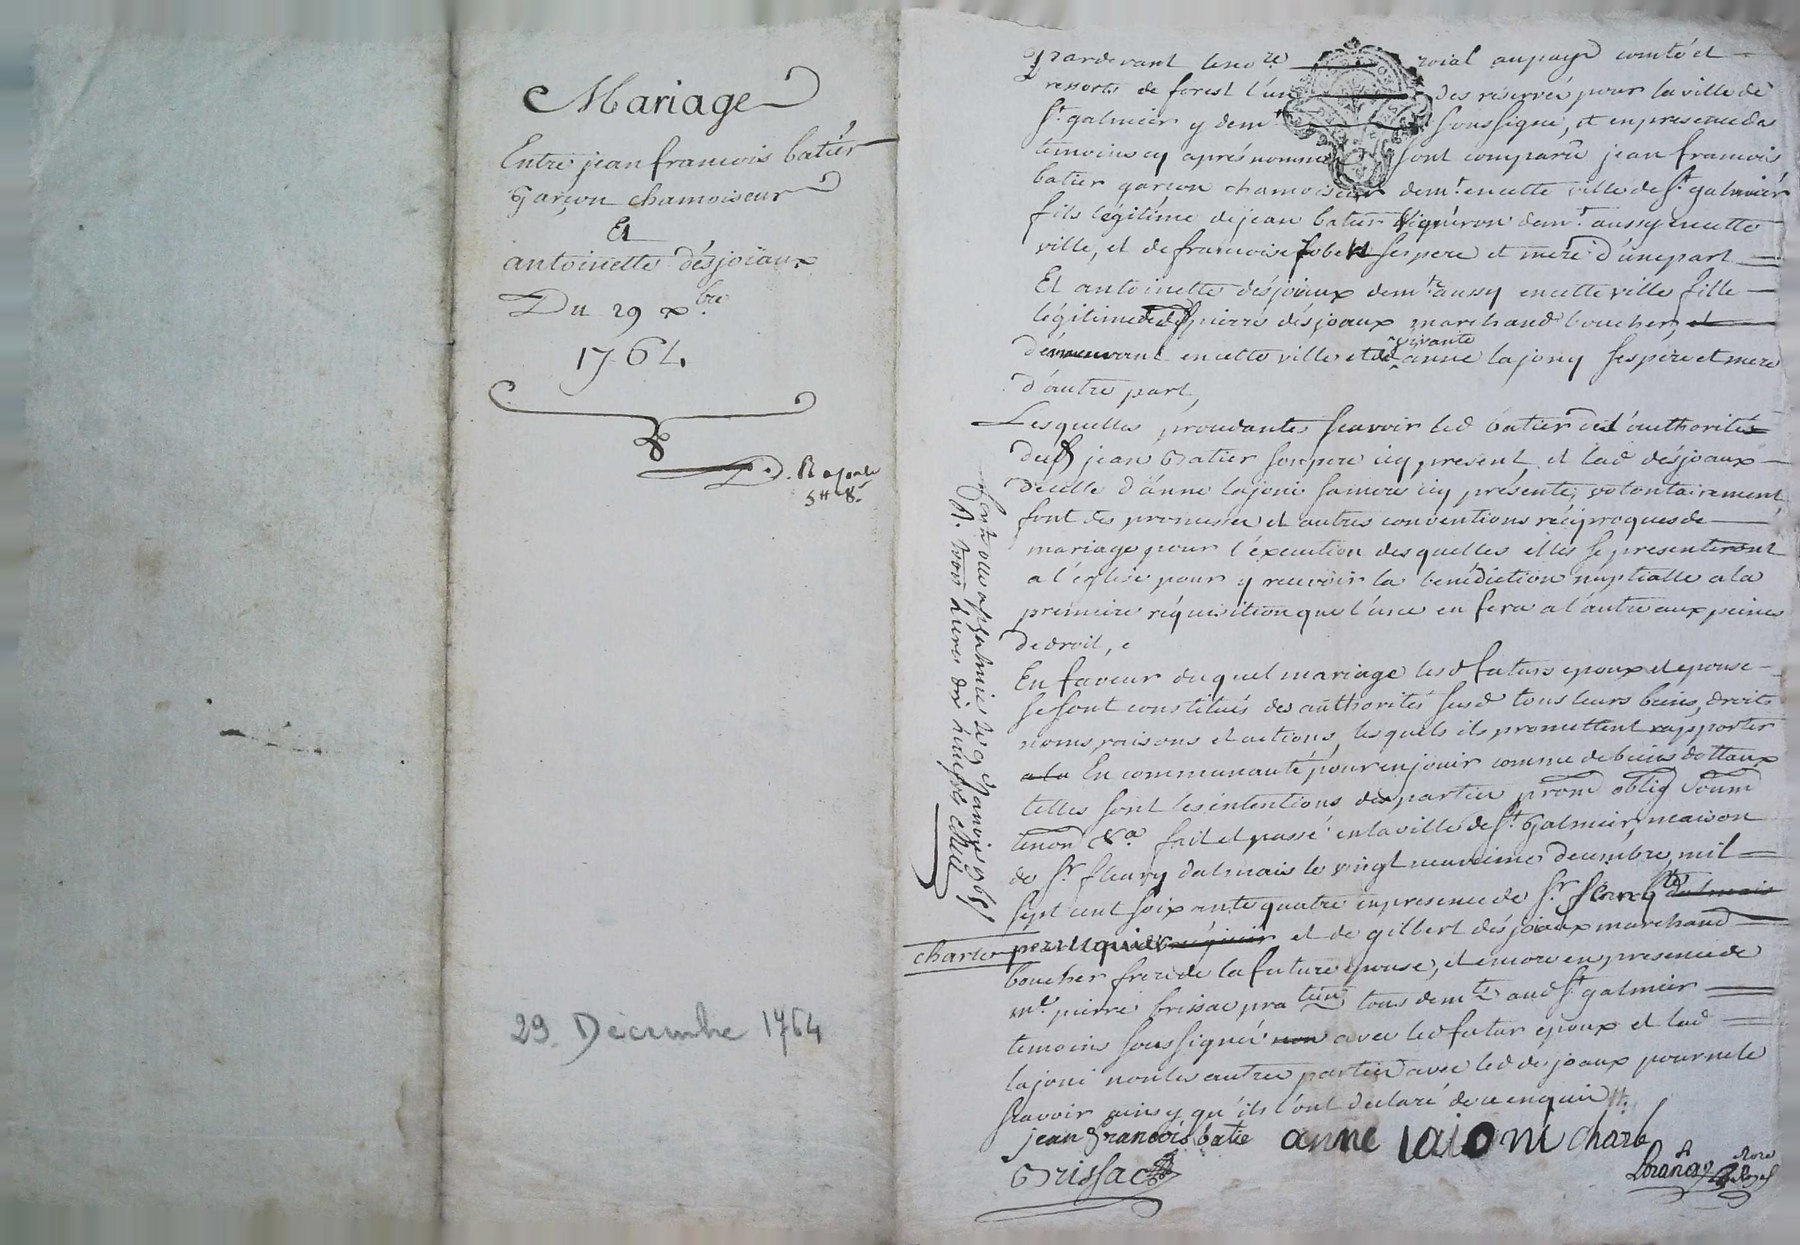 Mariage
Entre jean francois batier
Garçon chamoiseur
Et
antoinette désjoiaux
Du 29 xbre
1764
29 Décembre 1764
pardevant le no.re roial au pays comté et
ressorts de forest l'un des réservés pour la ville de
St. galmier y demt. soussigné, et en presence des
temoins cy après nommés sont comparû jean francois
batier garçon chamoiseur demt. en cette ville de St. galmier
fils légitime de jean batier vigneron demt. aussy en cette
ville, et de francoise ses pere et mere d'une part
Et antoinette désjoiaux demte. aussy en cette ville fille
légitime de pierre désjoaux marchand boucher, et
demeurant en cette ville et de vivante anne lajony ses pere et mere
d'autre part,
Lesquelles procedantes scavoir led batier de l'authorité
dud jean Batier son pere icy present, et lad désjoaux
de celle d'anne lajoni sa mere icy présente, volontairement
font des promesses et autres conventions réciproques de
mariage pour l'éxecution des quelles elles se presenteront
a l'eglise pour y recevoir la benédiction nuptialle a la
premiere réquisition que l'une en fera a l'autre aux peines
de droit,
En faveur du quel mariage lesd futurs epoux et epouse
se sont constitués des authorités susd tous leurs biens, droits
noms, raisons et actions, lesquels ils promettent rapporter
a la En communauté pour en jouir comme de biens dottaux
telles sont les intentions des parties prom oblig soum
renon &a. fait et passé en la ville de St. Galmier, maison
de Sr. fleury dalmais le vingt neuvieme decembre mil
sept cent soixante quatre en presence de Sr. dalmais
charles perruquier et de gilbert désjoiaux marchand
boucher frere de la future epouse, et encore en presence de
me. pierre brissac praticien tous demts. aud St galmier
temoins soussignés non avec led futur epoux et lad
lajoni non les autres parties avec led desjoaux pour ne le
scavoir ainsy qu'ils l'ont déclaré de ce enquis
jean francois batie anne laioni charle
Brissac